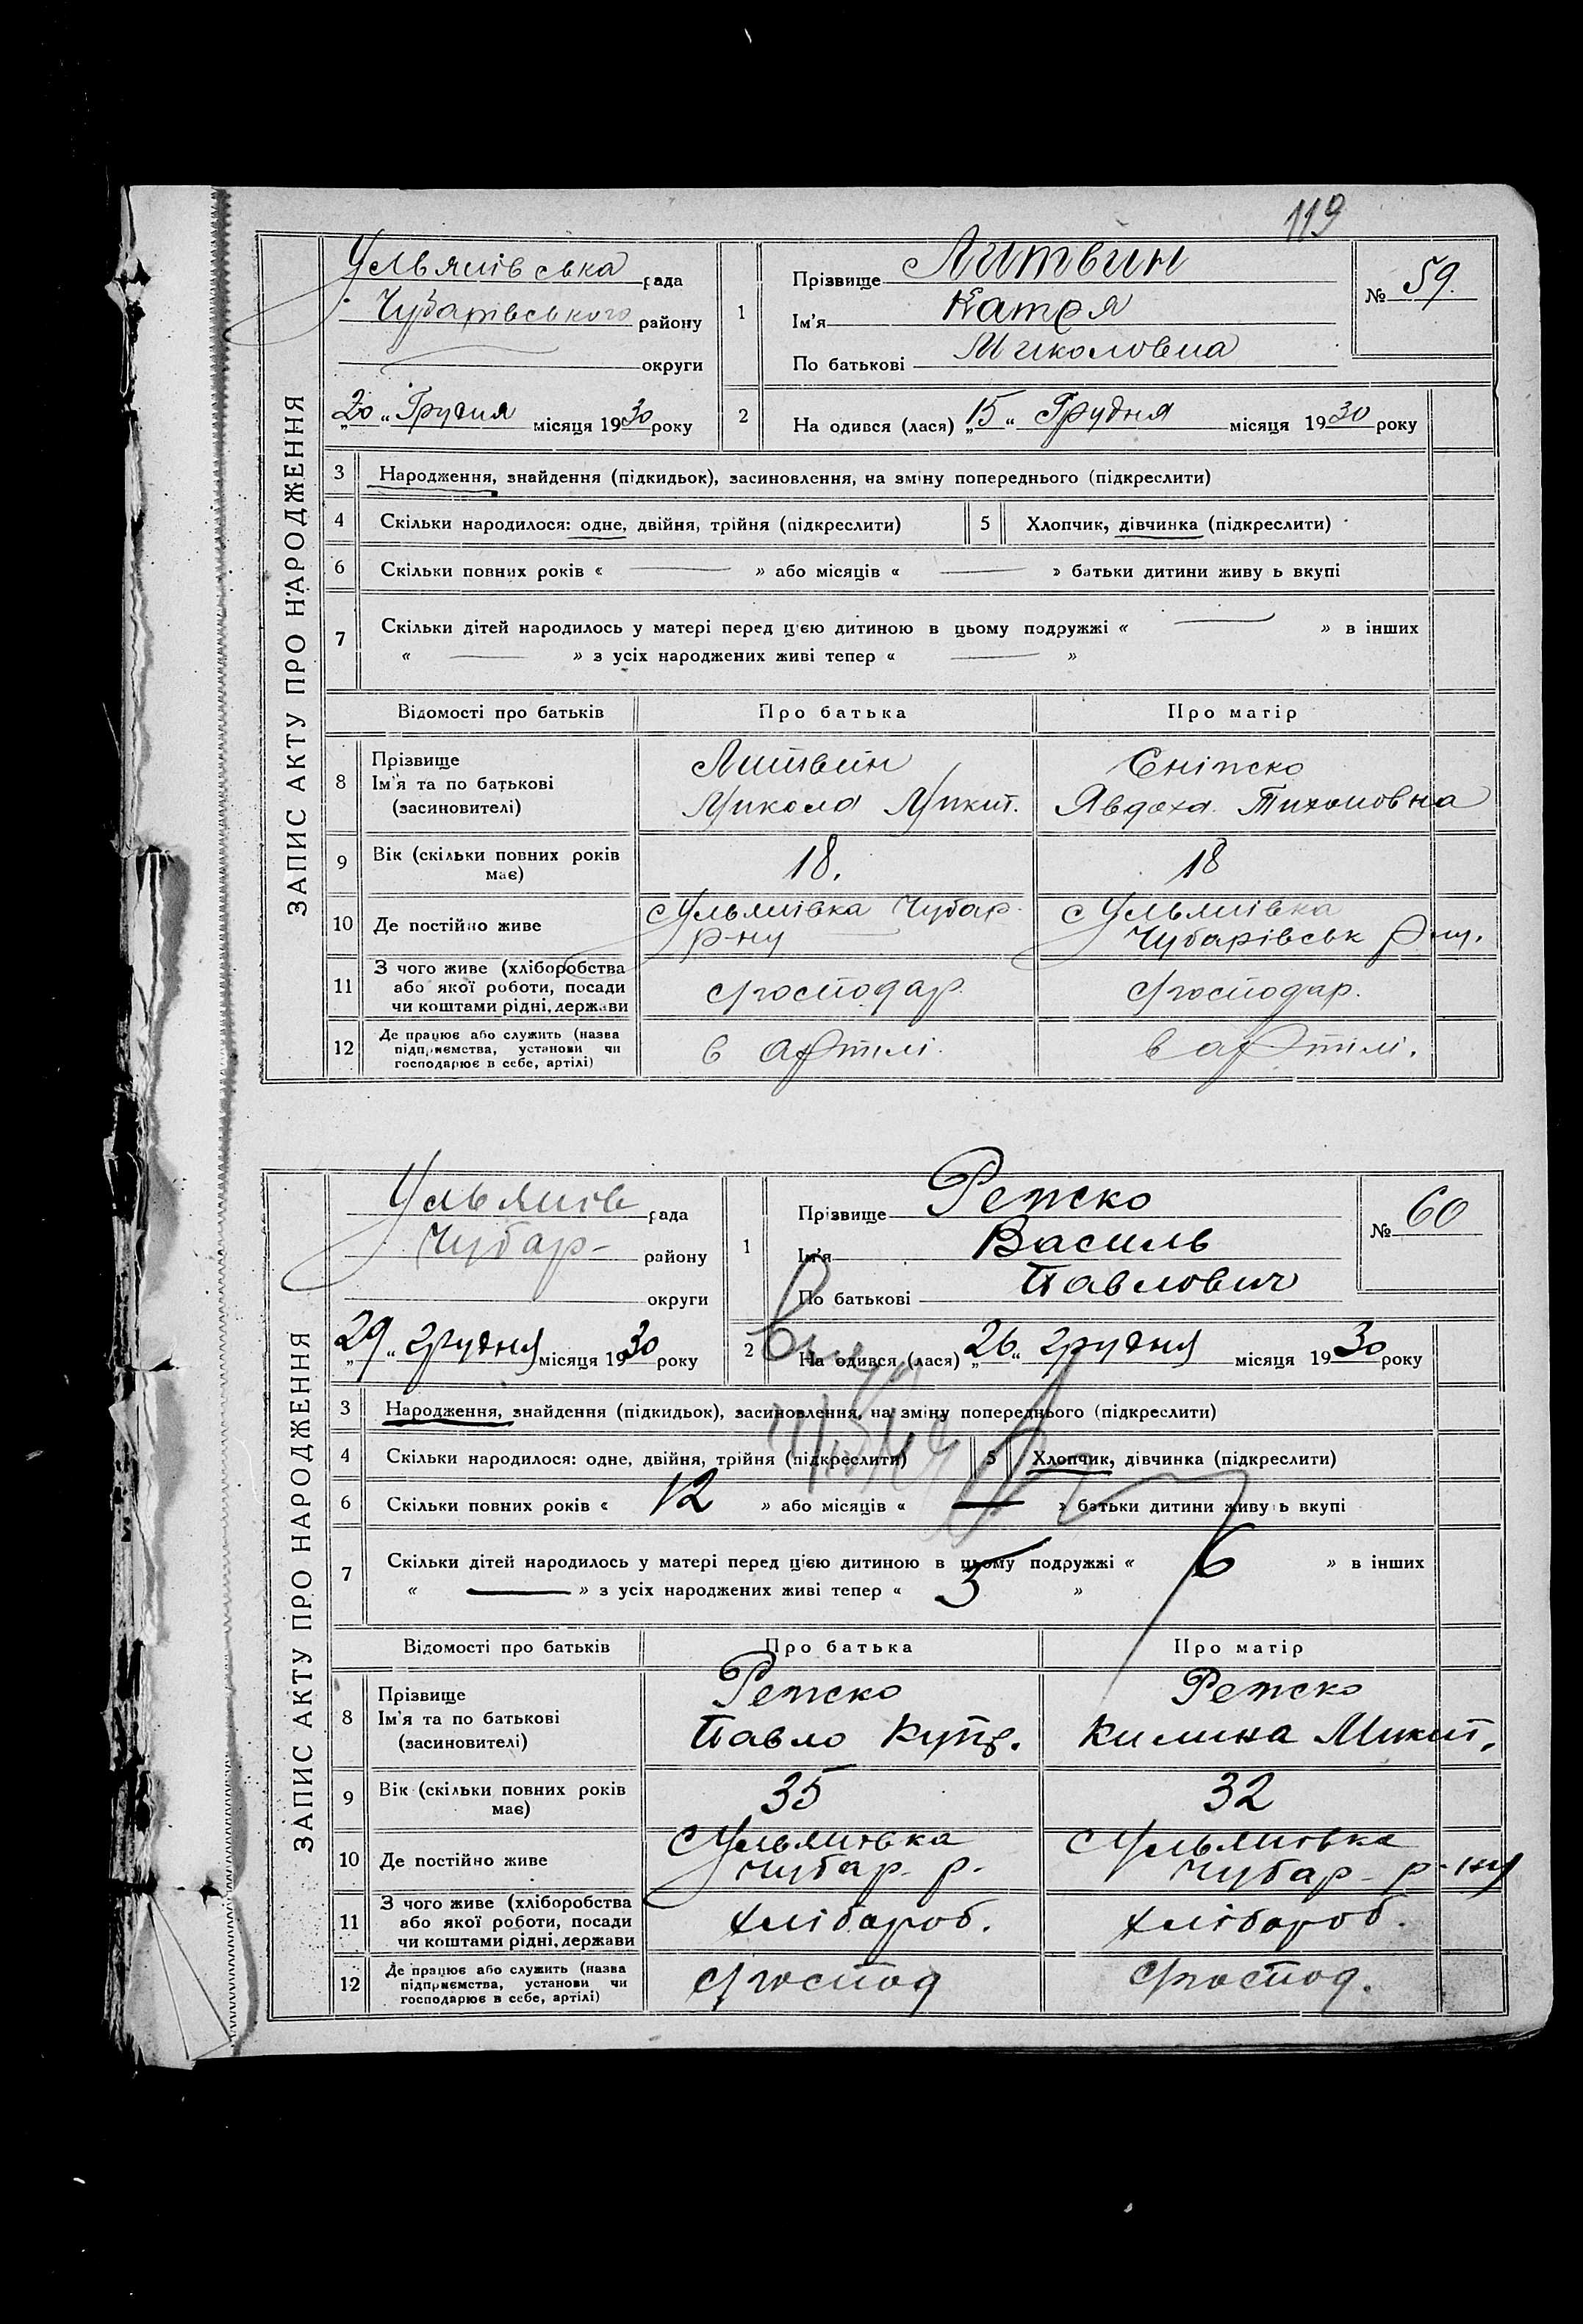 119
ЗАПИС АКТУ ПРО НАРОДЖЕННЯ
Ульянівська рада
Чубарівського району
округи
„20“ Грудня місяця 1930 року
1
Прізвище Литвин
Ім'я Катря
По батькові Миколовна
№ 59.
2
На одився (лася) „15“ Грудня місяця 1930 року
3 Народження, знайдення (підкидьок), засиновлення, на зміну попереднього (підкреслити)
4 Скільки народилося: одне, двійня, трійня (підкреслити) 5 Хлопчик, дівчинка (підкреслити)
6 Скільки повних років « — » або місяців « — » батьки дитини живу ь вкупі
7 Скільки дітей народилось у матері перед цією дитиною в цьому подружжі « — » в інших
« — » з усіх народжених живі тепер « — »
Відомості про батьків Про батька Про матір
8 Прізвище Ім'я та по батькові (засиновителі)
Литвин
Микола Микит.
Явдоха Тихоновна
9 Вік (скільки повних років має) 18. 18
10 Де постійно живе
с Ульянівка Чубар. р-ну —
с Ульянівка Чубарівськ р-ну.
11 З чого живе (хліборобства або якої роботи, посади чи коштами рідні, держави
господар. господар.
12 Де працює або служить (назва підприємства, установи чи господарює в себе, артілі)
в артілі. в артілі.
ЗАПИС АКТУ ПРО НАРОДЖЕННЯ
Ульянів рада
Чубар- району
округи
„29“ грудня місяця 1930 року
1
Прізвище Репско
Ім'я Василь
По батькові Павлович
№ 60
2
На одився (лася) „26“ грудня місяця 1930 року
3 Народження, знайдення (підкидьок), засиновлення, на зміну попереднього (підкреслити)
4 Скільки народилося: одне, двійня, трійня (підкреслити) 5 Хлопчик, дівчинка (підкреслити)
6 Скільки повних років « 12 » або місяців « — » батьки дитини живу ь вкупі
7 Скільки дітей народилось у матері перед цією дитиною в цьому подружжі « 6 » в інших
« — » з усіх народжених живі тепер « 5 »
Відомості про батьків Про батька Про матір
8 Прізвище Ім'я та по батькові (засиновителі)
Репско
Павло Купр.
Репско
Килина Микит.
9 Вік (скільки повних років має) 35 32
10 Де постійно живе
с Ульянівка Чубар р.
с Ульянівка Чубар- р-ну
11 З чого живе (хліборобства або якої роботи, посади чи коштами рідні, держави
хлібороб. хлібороб.
12 Де працює або служить (назва підприємства, установи чи господарює в себе, артілі)
господ господ.